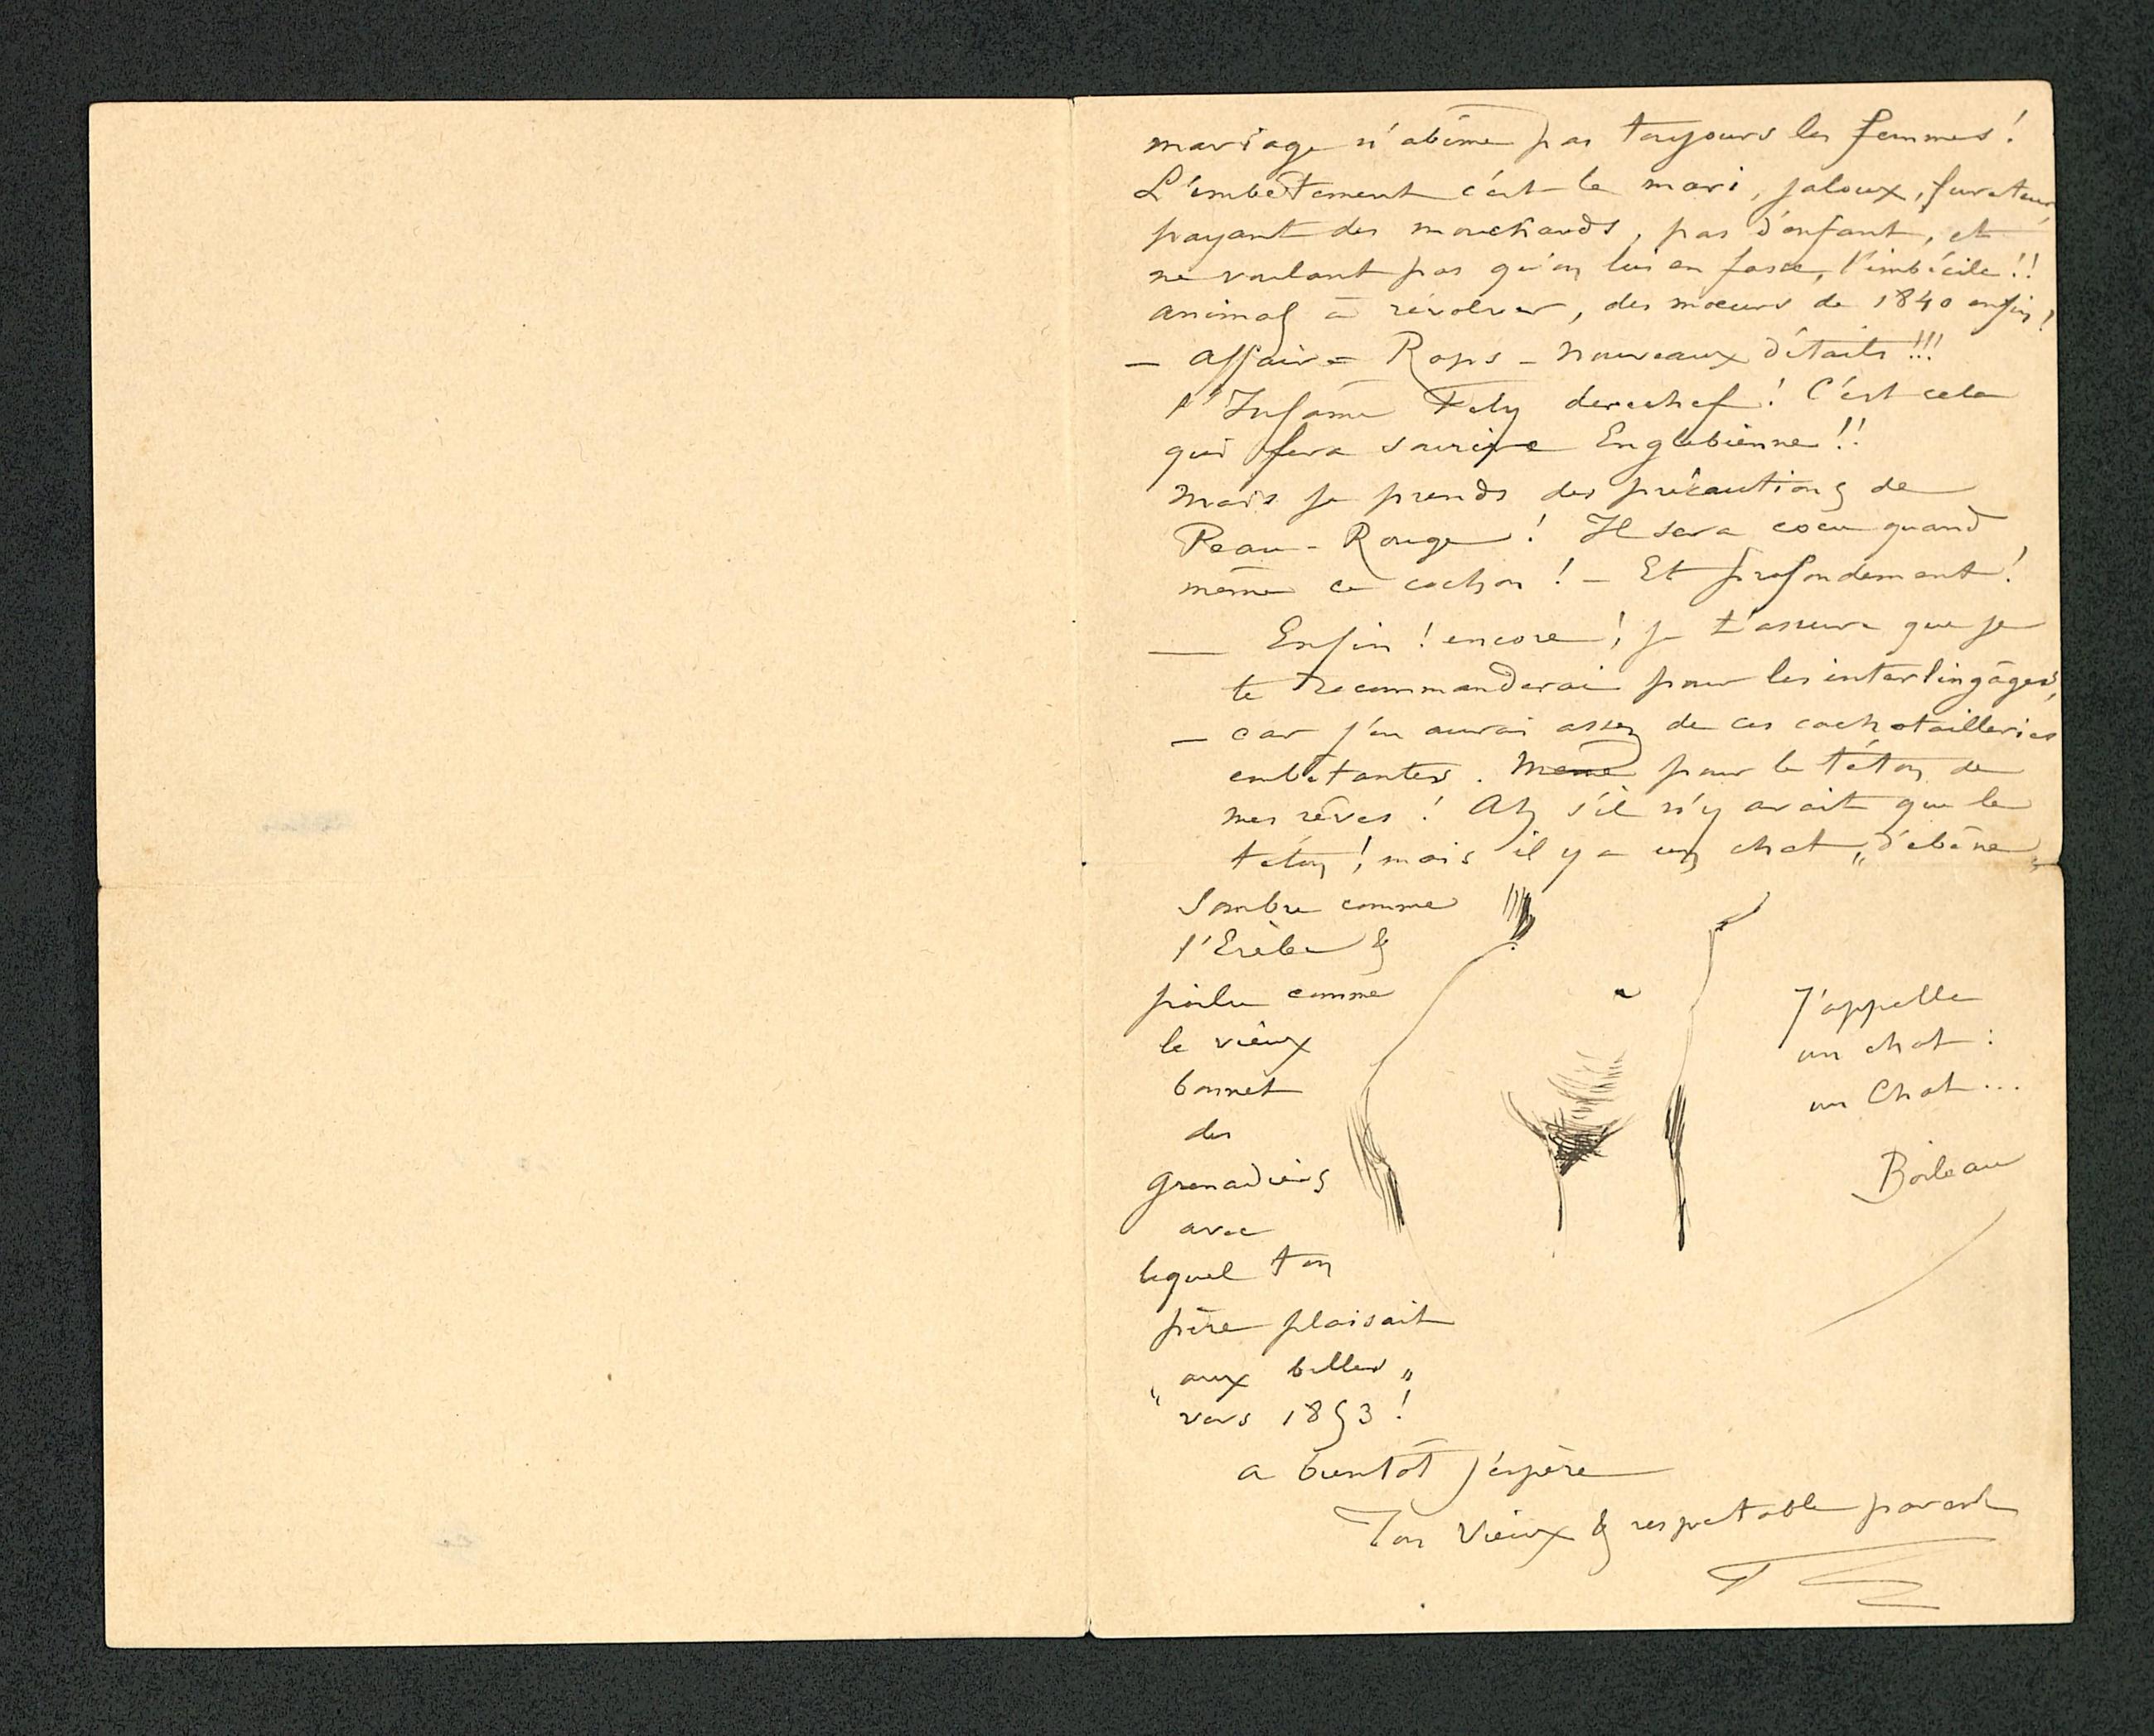 mariage n'abîme pas toujours les femmes!
L'embêtement c'est le mari, jaloux, fureteur,
payant des mouchards, pas d'enfant, et
ne voulant pas qu'on lui en fasse, l'imbécile!!
animal à révolver, des mœurs de 1840 enfin!
— affaire Rops – nouveaux détails!!!
l'Infâme Fély derechef! C'est cela
qui fera sourire Englebienne!!
Mais je prends des précautions de
Peau-Rouge! Il sera cocu quand
même ce cochon! – Et profondement!
— Enfin! encore! je t'assure que je
te recommanderai pour les interlingâges,
– car j'en aurai assez de ces
embêtantes. Même pour le téton de
mes rêves! Ah s'il n'y avait que le
téton! mais il y a un chat „d'ébène„
Sombre comme
l'Erèbe &
poilu comme
le vieux
bonnet
des
grenadiers
avec
lequel ton
père plaisait
"aux belles„
vers 1853!
J'appelle
un chat:
un Chat...
Boileau
a bientôt j'espère
Ton vieux & respectable parent